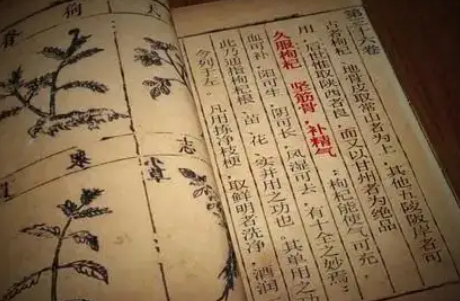 第三十六卷
古者枸杞、地骨皮取常山者为上，其他五陵阪岸者可
用，后世惟取陕西者良，而又以甘州者为绝品
久服枸杞 坚筋骨，补精气 枸杞能使气可充，
血可补，阳可生，阴可长，风湿可去，有十全之妙焉
此乃通指枸杞根、苗、花、实并用之功也，其单用之
今列于左。凡用拣净枝梗，取鲜明者洗净，酒润
志
草